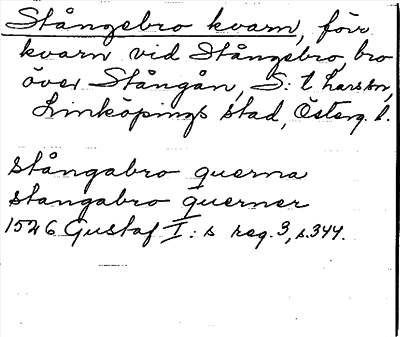 Stångebro kvarn, förr
kvarn vid Stångebro, bro
över Stångån, S:t Lars sn,
Linköpings stad, Österg. l.
stångabro querna
stangabro querner
1526 Gustaf I:s reg. 3, s. 344.